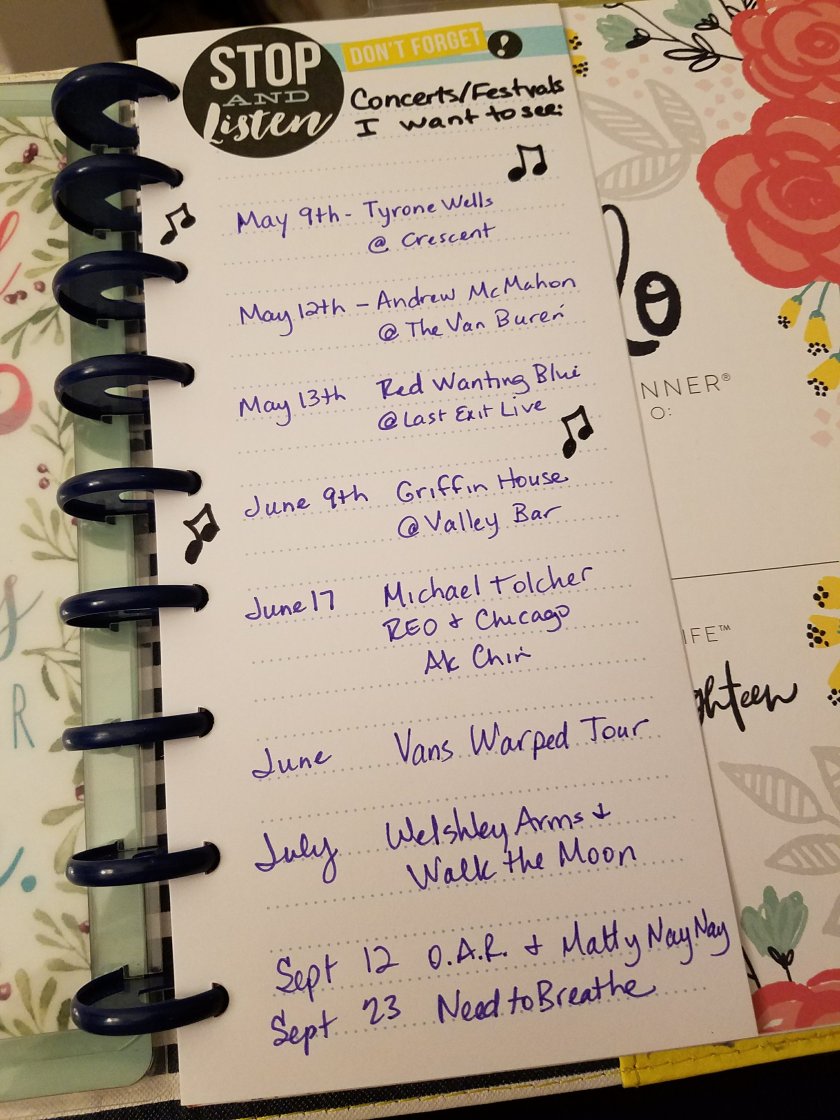 STOP
AND
Listen
DON'T FORGET
!
Concerts/Festivals
I want to see:
May 9th - Tyrone Wells
@ Crescent
May 12th - Andrew McMahon
@ The Van Buren
May 13th Red Wanting Blue
@ Last Exit Live
June 9th Griffin House
@ Valley Bar
June 17 Michael Tolcher
REO & Chicago
Ak Chin
June Vans Warped Tour
July Welshley Arms &
Walk the Moon
Sept 12 O.A.R. & Matty Nay Nay
Sept 23 Need to Breathe
lo
NNER®
O:
IFE™
ghteen
R